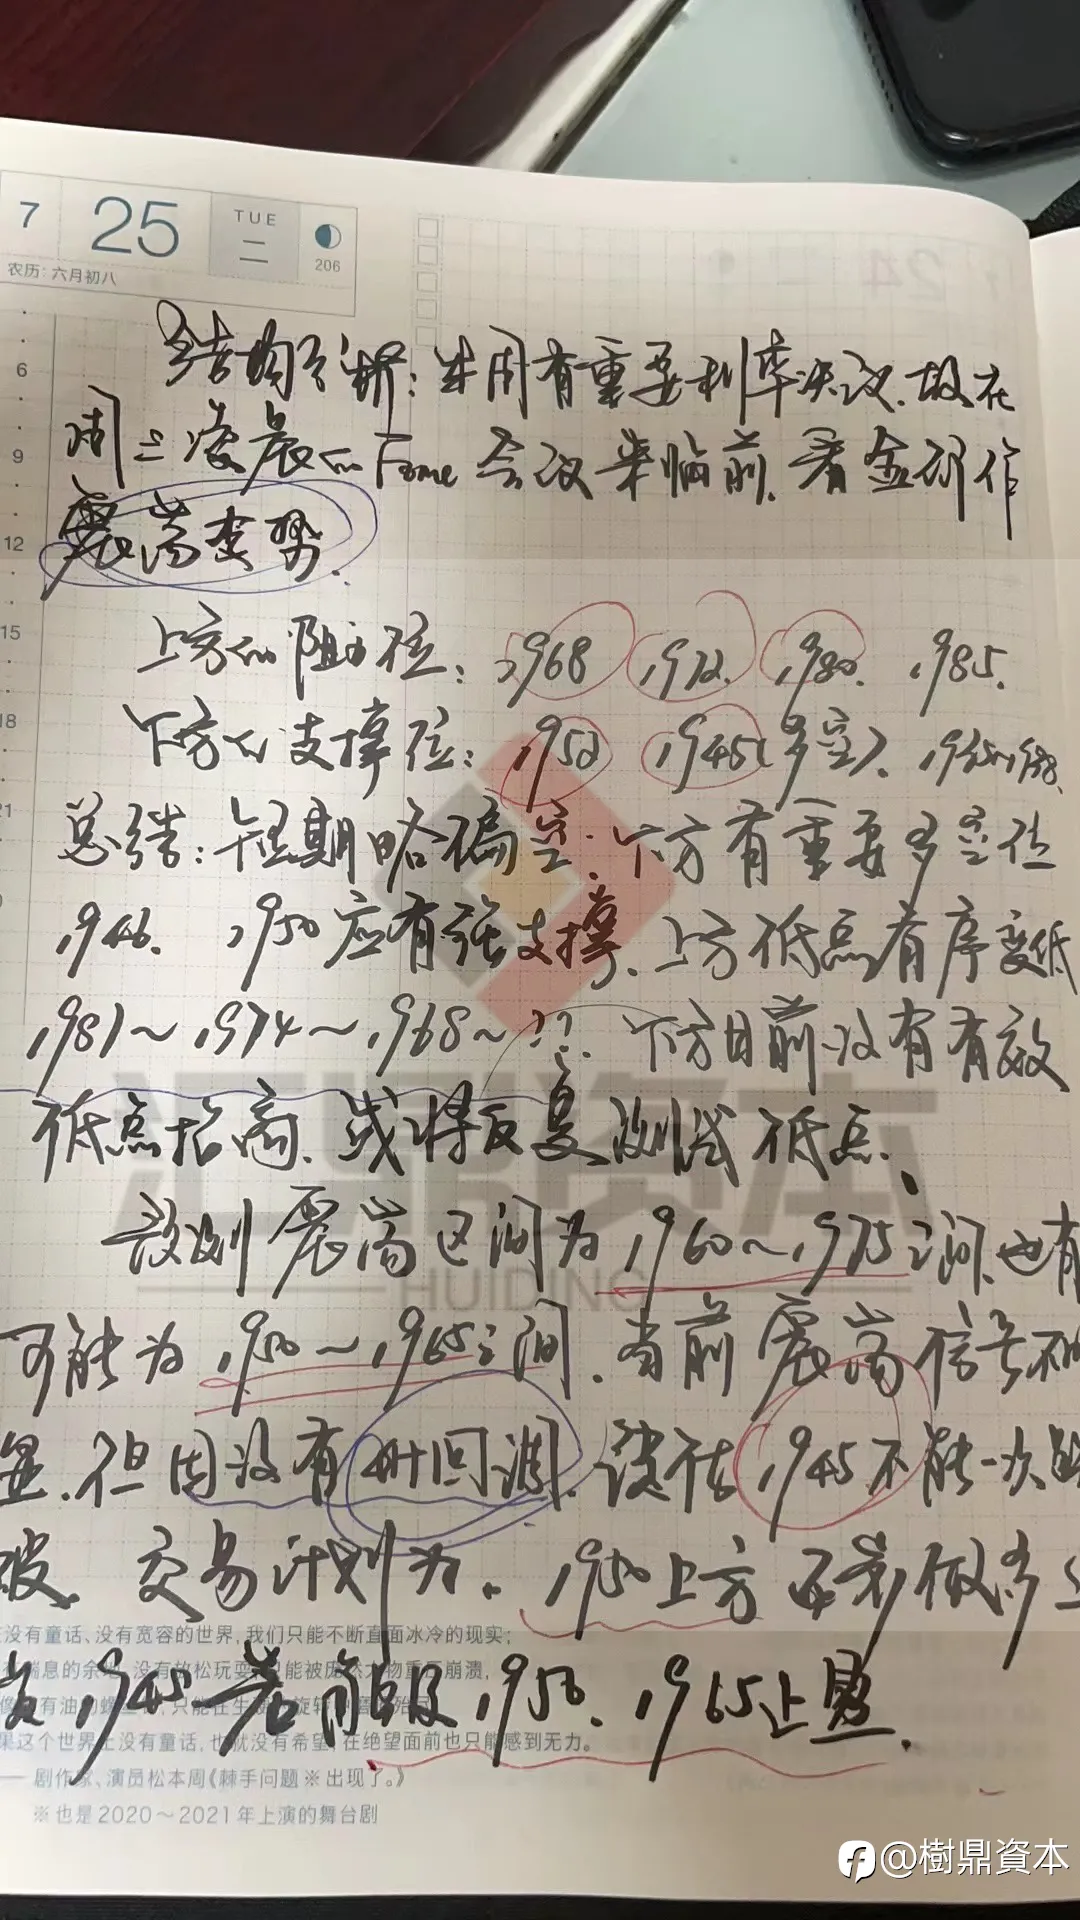 7 25 TUE 二 206
农历: 六月初八
结构分析: 本周有重要利率决议. 故在
6
周三凌晨的Fomc会议来临前. 看金价作
9
震荡走势.
12
上方的阻力位: 1968 1972. 1980. 1985.
15
下方的支撑位: 1952 1945(多空).
18
总结: 短期略偏空. 下方有重要多空位
21
1946. 1950应有强支撑. 上方低点有序变低
1981~1974~1968~??. 下方目前没有有效
低点抬高. 或将反复测试低点.
汇鼎资本
HUIDING
预测震荡区间为1960~1975之间. 也有
可能为1950~1965之间. 当前震荡信号不明
显. 但因没有 回调. 误估1945不能一次跌
破. 交易计划为. 1950上方再我做多
没有童话、没有宽容的世界, 我们只能不断直面冰冷的现实;
1945 若 1950. 1965止盈.
果这个世界上没有童话, 也就没有希望, 在绝望面前也只能感到无力。
—— 剧作家、演员松本周《棘手问题※出现了。》
※也是2020~2021年上演的舞台剧
@樹鼎資本